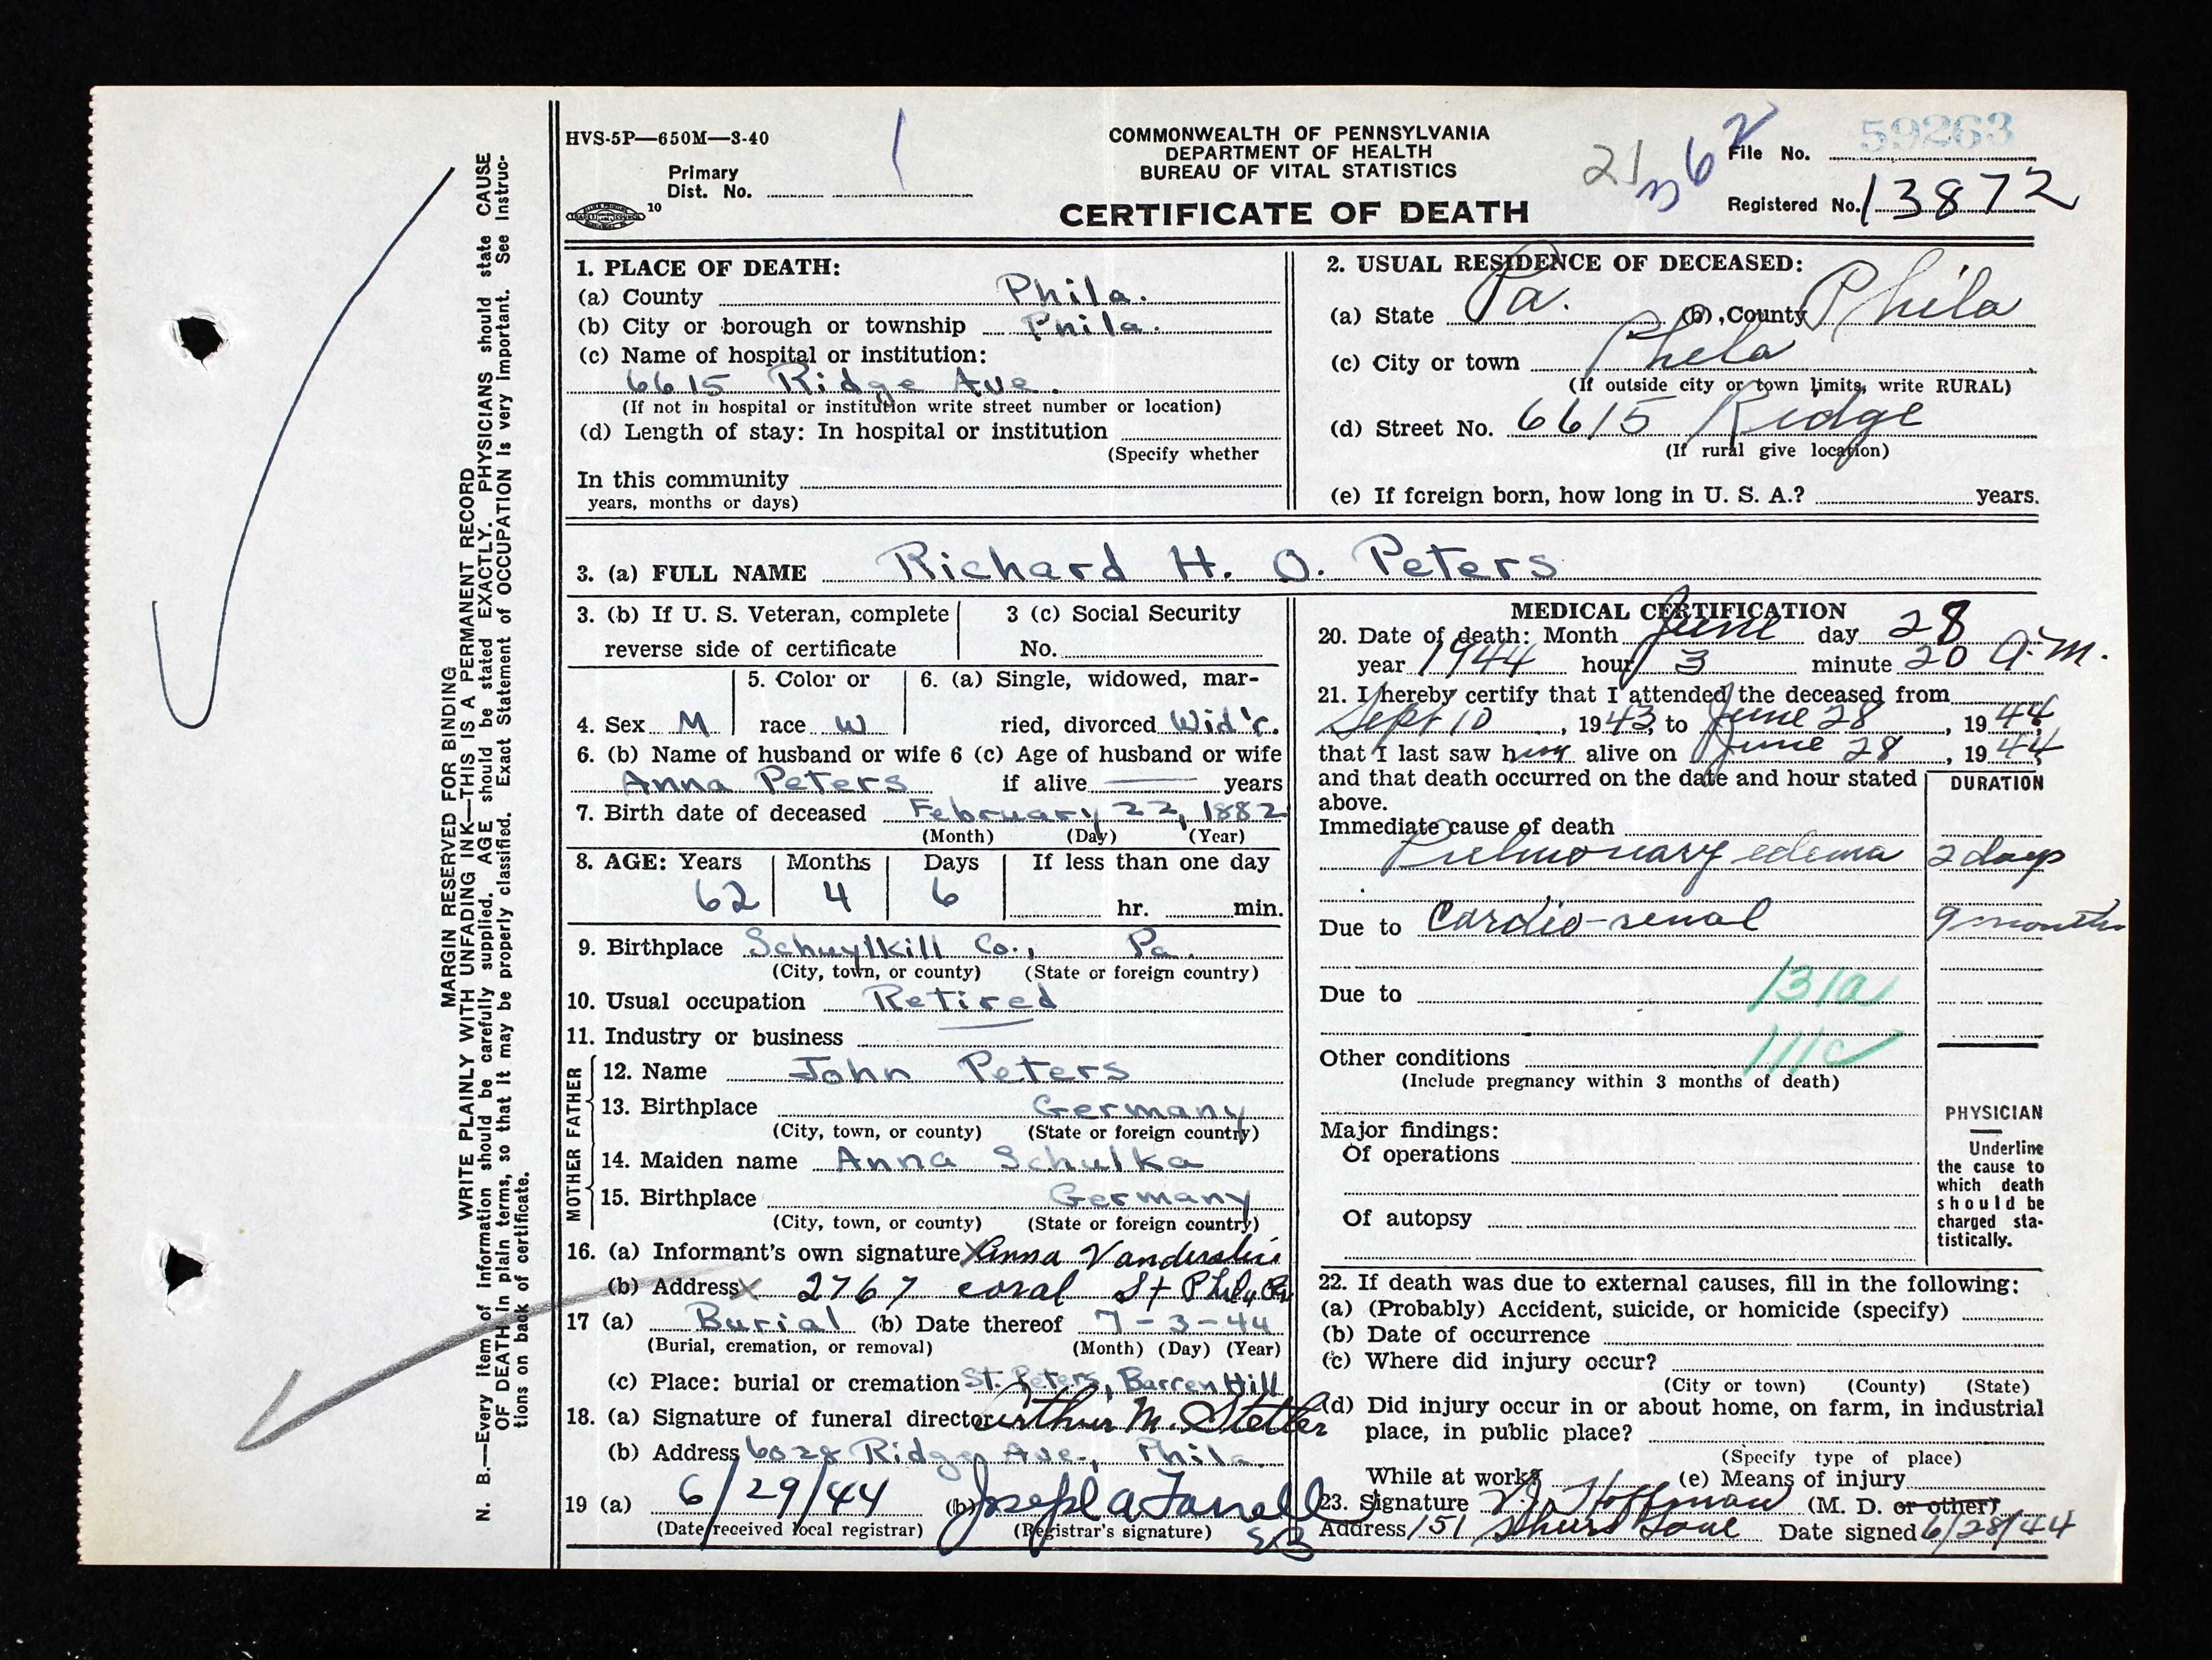 HVS-5P—650M—3-40
Primary
Dist. No.
10
COMMONWEALTH OF PENNSYLVANIA
DEPARTMENT OF HEALTH
BUREAU OF VITAL STATISTICS
CERTIFICATE OF DEATH
21 362
File No. 59263
Registered No. 13872
MARGIN RESERVED FOR BINDING
WRITE PLAINLY WITH UNFADING INK—THIS IS A PERMANENT RECORD
N. B.—Every item of information should be carefully supplied. AGE should be stated EXACTLY. PHYSICIANS should state CAUSE
OF DEATH in plain terms, so that it may be properly classified. Exact Statement of OCCUPATION is very important. See Instruc-
tions on back of certificate.
1. PLACE OF DEATH:
(a) County Phila.
(b) City or borough or township Phila.
(c) Name of hospital or institution:
6615 Ridge Ave.
(If not in hospital or institution write street number or location)
(d) Length of stay: In hospital or institution
(Specify whether
In this community
years, months or days)
2. USUAL RESIDENCE OF DECEASED:
(a) State Pa. (b) County Phila
(c) City or town Phila
(If outside city or town limits, write RURAL)
(d) Street No. 6615 Ridge
(If rural give location)
(e) If foreign born, how long in U. S. A.? years.
3. (a) FULL NAME Richard H. O. Peters
3. (b) If U. S. Veteran, complete
reverse side of certificate
3 (c) Social Security
No.
4. Sex M
5. Color or
race W
6. (a) Single, widowed, mar-
ried, divorced Wid'r.
6. (b) Name of husband or wife 6 (c) Age of husband or wife
Anna Peters if alive — years
7. Birth date of deceased February 22, 1882
(Month) (Day) (Year)
8. AGE: Years Months Days If less than one day
62 4 6 hr. min.
9. Birthplace Schuylkill Co., Pa.
(City, town, or county) (State or foreign country)
10. Usual occupation Retired
11. Industry or business
FATHER
12. Name John Peters
13. Birthplace Germany
(City, town, or county) (State or foreign country)
MOTHER
14. Maiden name Anna Schulka
15. Birthplace Germany
(City, town, or county) (State or foreign country)
16. (a) Informant's own signature X Anna Vanderslice
(b) Address X 2767 coral St Phila Pa
17 (a) Burial (b) Date thereof 7-3-44
(Burial, cremation, or removal) (Month) (Day) (Year)
(c) Place: burial or cremation St. Peters, Barren Hill
18. (a) Signature of funeral director Arthur M. Stetler
(b) Address 6028 Ridge Ave., Phila.
19 (a) 6/29/44 (b) Joseph A Farrell
(Date received local registrar) (Registrar's signature)
MEDICAL CERTIFICATION
20. Date of death: Month June day 28
year 1944 hour 3 minute 20 A.M.
21. I hereby certify that I attended the deceased from
Sept 10, 1943, to June 28, 1944
that I last saw him alive on June 28, 1944
and that death occurred on the date and hour stated
above.
DURATION
Immediate cause of death
Pulmonary edema 2 days
Due to Cardio-renal 9 months
131a
Due to
111c
Other conditions
(Include pregnancy within 3 months of death)
Major findings:
Of operations
Of autopsy
PHYSICIAN
Underline
the cause to
which death
should be
charged sta-
tistically.
22. If death was due to external causes, fill in the following:
(a) (Probably) Accident, suicide, or homicide (specify)
(b) Date of occurrence
(c) Where did injury occur?
(City or town) (County) (State)
(d) Did injury occur in or about home, on farm, in industrial
place, in public place?
(Specify type of place)
While at work? (e) Means of injury
23. Signature Hoffman (M. D. or other)
Address 151 Shurs Lane Date signed 6/28/44